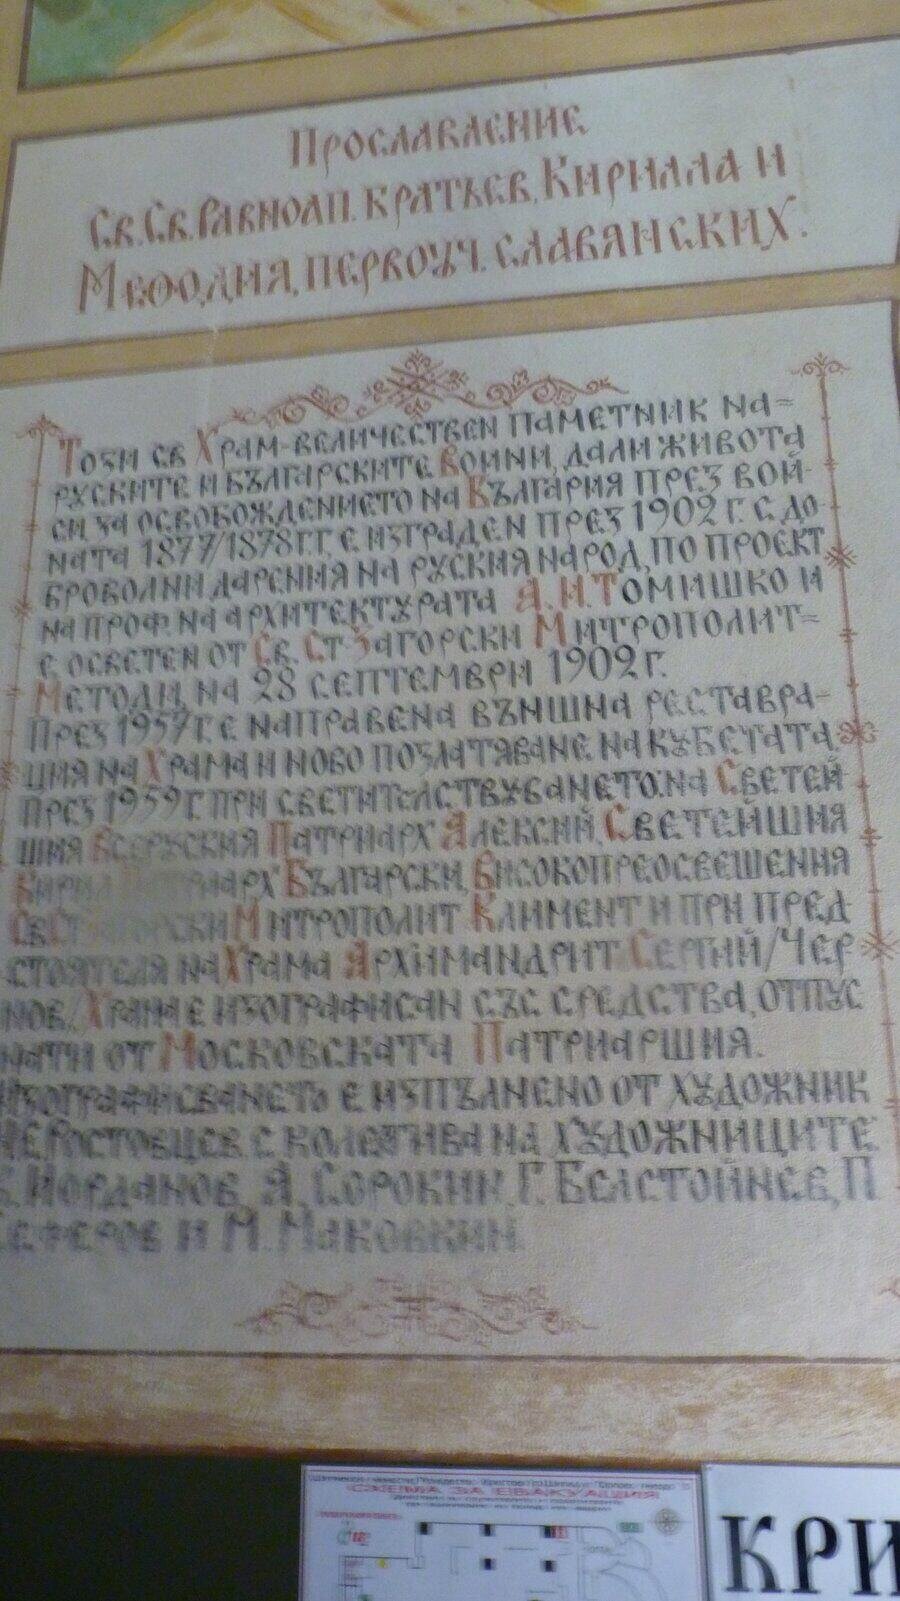 Прославление
Св.Св.Равноап. братьев, Кирилла и
Мефодия, первоуч. славянских.
Този св Храм-величествен паметник на=
руските и българските Воини, дали живота
си за освобождението на България през вой-
ната 1877/1878г.г. е изграден през 1902 г. с до
броволни дарения на руския народ, по проект
на проф. на архитектурата А.И.Томишко и
е осветен от Св. Ст Загорски Митрополит=
Методи, на 28 септември 1902 г.
През 1957г. е направена външна реставра-
ция на Храма и ново позлатяване на кубетата.
през 1959 г. при светителствуването на Светей
шия Всеруския Патриарх Алексий, Светейшия
Кирил Патриарх Български, Високопреосвешения
Св Ст Загорски Митрополит Климент и при пред
стоятеля на Храма Архимандрит Сергий/Чер
нов/. Храма е изографисан със средства, отпус
нати от Московската Патриаршия.
Изографисването е изпълнено от художник
Н.Е.Ростовцев с колектива на художниците
Йорданов, А. Сорокин, Г. Белстойнев, П
Сеферов и М. Маковкин.
СХЕМА ЗА ЕВАКУАЦИЯ
КРИ